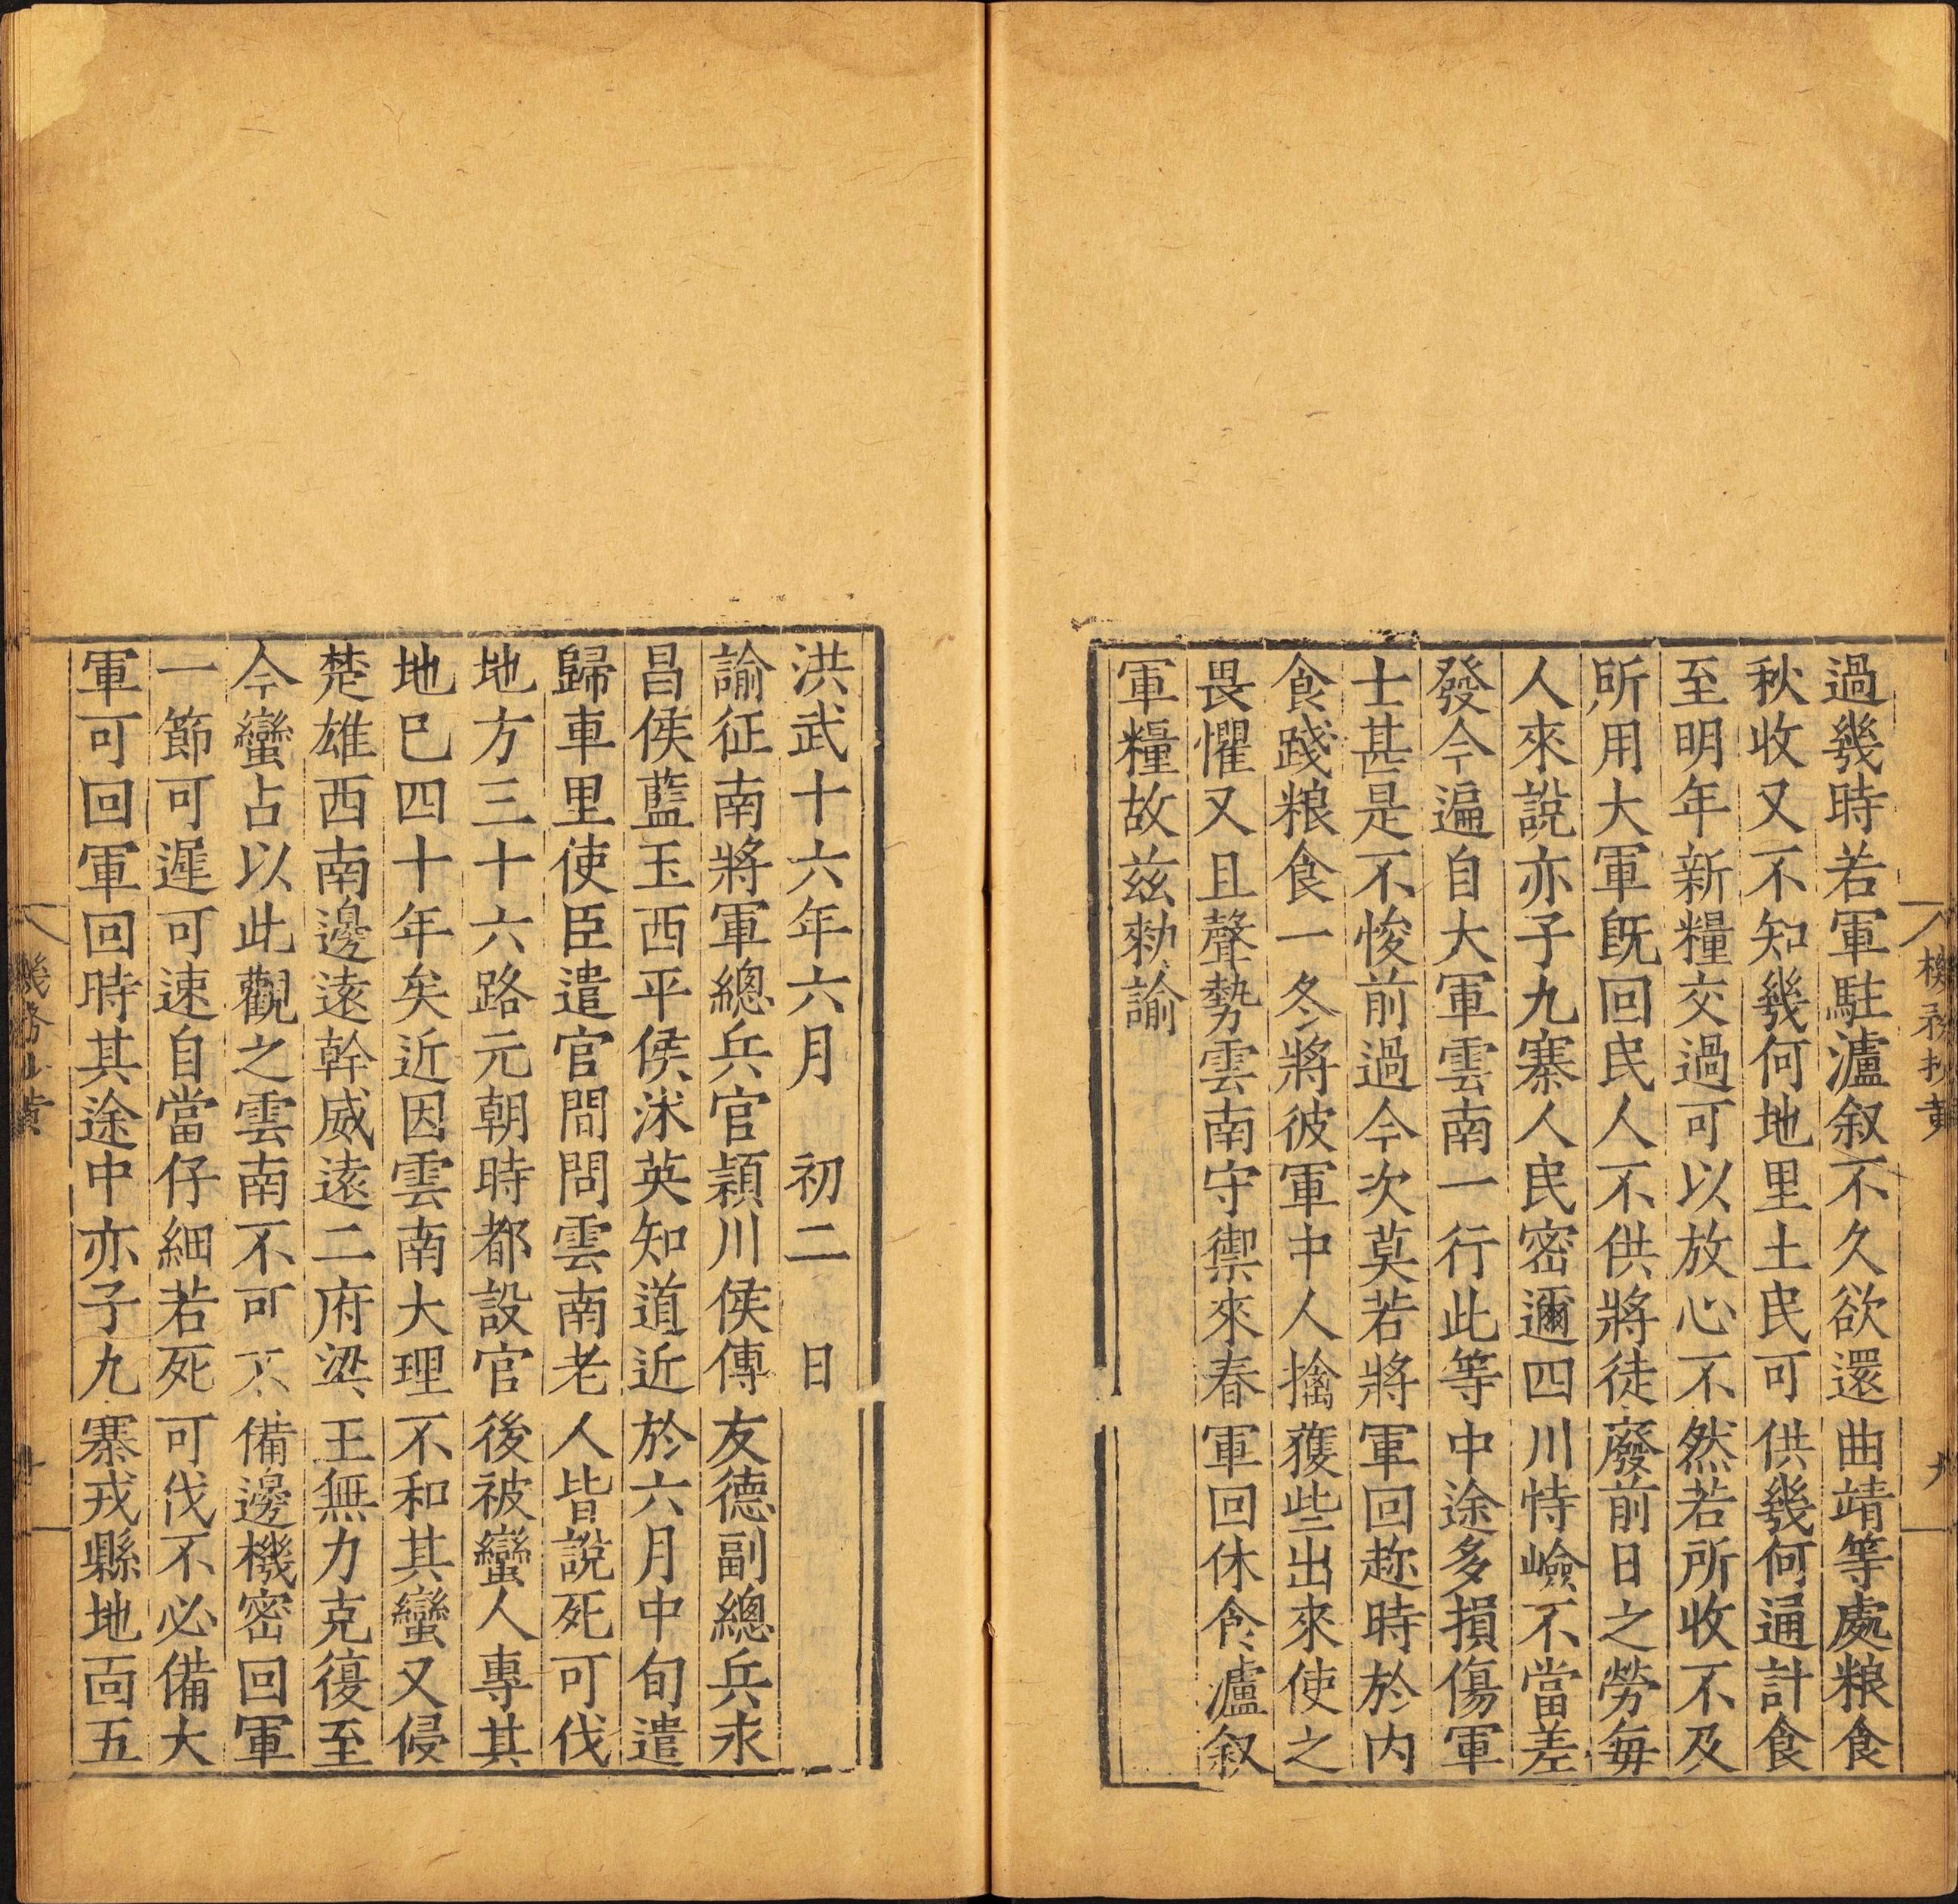 過幾時若軍駐瀘叙不久欲還曲靖等處粮食
秋收又不知幾何地里土民可供幾何通計食
至明年新糧交過可以放心不然若所收不及
所用大軍既回民人不供將徒廢前日之勞每
人來說亦子九寨人民密邇四川恃嶮不當差
發今遍自大軍雲南一行此等中途多損傷軍
士甚是不悛前過今次莫若將軍回趂時於内
食踐粮食一冬將彼軍中人擒獲些出來使之
畏懼又且聲勢雲南守禦來春軍回休食瀘叙
軍糧故茲勑諭
機務抄黃
九
洪武十六年六月 初二 日
諭征南將軍總兵官潁川侯傅友德副總兵永
昌侯藍玉西平侯沐英知道近於六月中旬遣
歸車里使臣遣官間問雲南老人皆說死可伐
地方三十六路元朝時都設官後被蠻人專其
地巳四十年矣近因雲南大理不和其蠻又侵
楚雄西南邊遠幹威遠二府梁王無力克復至
今蠻占以此觀之雲南不可不備邊機密回軍
一節可遲可速自當仔細若死可伐不必備大
軍可回軍回時其途中亦子九寨戎縣地面五